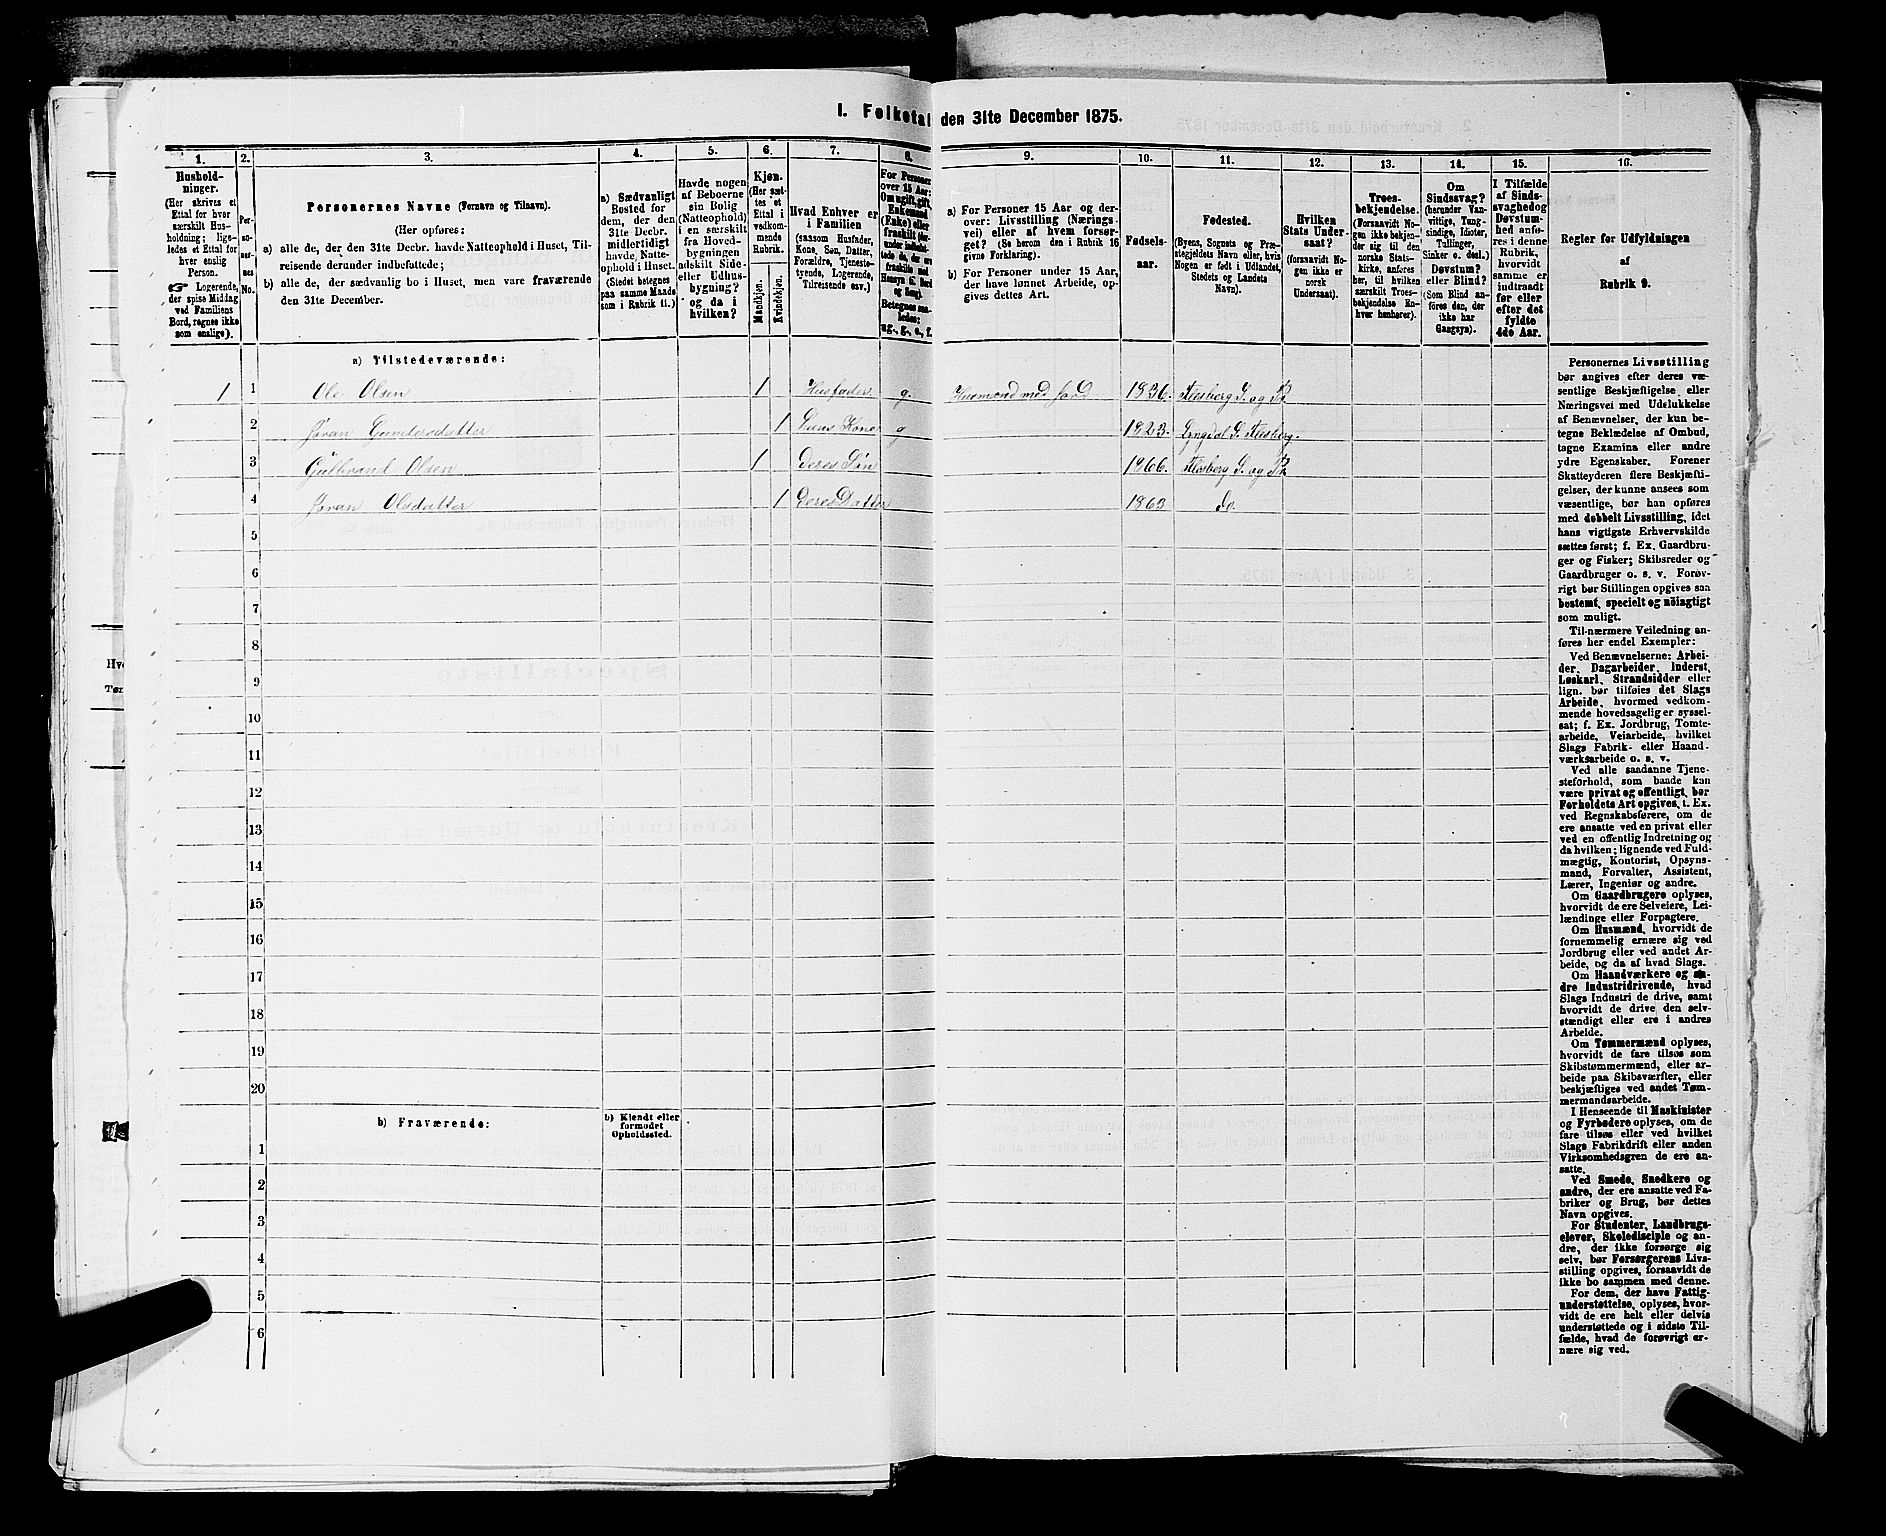 I. Folketal den 31te December 1875.
1. 2. 3. 4. 5. 6. 7. 8. 9. 10. 11. 12. 13. 14. 15. 16.
Hushold-
ninger.
(Her skrives et
Ettal for hver
særskilt Hus-
holdning; lige-
ledes et Ettal for
hver enslig
Person.
☞ Logerende,
der spise Middag
ved Familiens
Bord, regnes ikke
som enslige).
Per-
so-
ner-
nes
No.
Personernes Navne (Fornavn og Tilnavn).
(Her opføres:
a) alle de, der den 31te Decbr. havde Natteophold i Huset, Til-
reisende derunder indbefattede;
b) alle de, der sædvanlig bo i Huset, men vare fraværende
den 31te December.
a) Sædvanligt
Bosted for
dem, der den
31te Decbr.
midlertidigt
havde Natte-
ophold i Huset.
(Stedet betegnes
paa samme Maade
som i Rubrik 11.)
Havde nogen
af Beboerne
sin Bolig
(Natteophold)
i en særskilt
fra Hoved-
bygningen
adskilt Side-
eller Udhus-
bygning?
og da i
hvilken?
Kjøn.
(Her sæt-
tes et
Ettal i
vedkom-
mende
Rubrik.
Mandkjøn.
Kvindekjøn.
Hvad Enhver er
i Familien
(saasom Husfader,
Kone, Søn, Datter,
Forældre, Tjeneste-
tyende, Logerende,
Tilreisende osv.)
For Personer
over 15 Aar:
Om ugift, gift,
Enkemand
(Enke) eller
fraskilt
Betegnes saa-
ledes:
ug., g., e., f.
a) For Personer 15 Aar og der-
over: Livsstilling (Nærings-
vei) eller af hvem forsør-
get? (Se herom den i Rubrik 16
givne Forklaring).
b) For Personer under 15 Aar,
der have lønnet Arbeide, op-
gives dettes Art.
Fødsels-
aar.
Fødested.
(Byens, Sognets og Præ-
stegjeldets Navn eller, hvis
Nogen er født i Udlandet,
Stedets og Landets
Navn).
Hvilken
Stats Under-
saat?
(forsaavidt No-
gen ikke er
norsk
Undersaat).
Troes-
bekjendelse.
(Forsaavidt No-
gen ikke bekjen-
der sig til den
norske Stats-
kirke, anføres
her, til hvilken
særskilt Troes-
bekjendelse En-
hver henhører).
Om
Sindssvag?
(herunder Van-
vittige, Tung-
sindige, Idioter,
Tullinger,
Sinker o. desl.)
Døvstum?
eller Blind?
(Som Blind an-
føres den, der
ikke har
Gangsyn).
I Tilfælde
af Sinds-
svaghed og
Døvstum-
hed anfø-
res i denne
Rubrik,
hvorvidt
samme er
indtraadt
før eller
efter det
fyldte
4de Aar.
Regler for Udfyldningen
af
Rubrik 9.
a) Tilstedeværende:
1 1 Ole Olsen 1 Husfader g. Husmand med Jord 1836. Flesberg S. og P.
2 Jøran Gundersdatter 1 Hans Kone g 1823. Lyngdal S. Flesberg.
3 Gulbrand Olsen 1 Deres Søn 1866. Flesberg S. og P.
4 Jøran Olsdatter 1 Deres Datter 1863 do.
5
6
7
8
9
10
11
12
13
14
15
16
17
18
19
20
b) Fraværende:
b) Kjendt eller
formodet
Opholdssted.
1
2
3
4
5
6
Personernes Livsstilling
bør angives efter deres væ-
sentlige Beskjæftigelse eller
Næringsvei med Udelukkelse
af Benævnelser, der kun be-
tegne Beklædelse af Ombud,
tagne Examina eller andre
ydre Egenskaber. Forener
Skatteyderen flere Beskjæfti-
gelser, der kunne ansees som
væsentlige, bør han opføres
med dobbelt Livsstilling, idet
hans vigtigste Erhvervskilde
sættes først; f. Ex. Gaardbru-
ger og Fisker; Skibsreder og
Gaardbruger o. s. v. Forøv-
rigt bør Stillingen opgives saa
bestemt, specielt og nöiagtigt
som muligt.
Til nærmere Veiledning an-
føres her endel Exempler:
Ved Benævnelserne: Arbei-
der, Dagarbeider, Inderst,
Løskarl, Strandsidder eller
lign. bør tilføies det Slags
Arbeide, hvormed vedkom-
mende hovedsagelig er syssel-
sat; f. Ex. Jordbrug, Tomte-
arbeide, Veiarbeide, hvilket
Slags Fabrik- eller Haand-
værksarbeide o. s. v.
Ved alle saadanne Tjene-
steforhold, som baade kan
være privat og offentligt, bør
Forholdets Art opgives, t. Ex.
ved Regnskabsførere, om de
ere ansatte ved en privat eller
ved en offentlig Indretning og
da hvilken; lignende ved Fuld-
mægtig, Kontorist, Opsyns-
mand, Forvalter, Assistent,
Lærer, Ingeniør og andre.
Om Gaardbrugere oplyses,
hvorvidt de ere Selveiere, Lei-
lændinge eller Forpagtere.
Om Husmænd, hvorvidt de
fornemmelig ernære sig ved
Jordbrug eller ved andet Ar-
beide, og da af hvad Slags.
Om Haandværkere og an-
dre Industridrivende, hvad
Slags Industri de drive, samt
hvorvidt de drive den selv-
stændigt eller ere i andres
Arbeide.
Om Tømmermænd oplyses,
hvorvidt de fare tilsøs som
Skibstømmermænd, eller ar-
beide paa Skibsværfter, eller
beskjæftiges ved andet Tøm-
mermandsarbeide.
I Henseende til Maskinister
og Fyrbødere oplyses, om de
fare tilsøs eller ved hvilket
Slags Fabrikdrift eller anden
Virksomhedsgren de ere an-
satte.
Ved Smede, Snedkere og
andre, der ere ansatte ved Fa-
briker og Brug, bør dettes
Navn opgives.
For Studenter, Landbrugs-
elever, Skoledisciple og an-
dre, der ikke forsørge sig
selv, bør Forsørgerens Livs-
stilling opgives, forsaavidt de
ikke bo sammen med denne.
For dem, der have Fattig-
understøttelse, oplyses, hvor-
vidt de ere helt eller delvis
understøttede og i sidste Til-
fælde, hvad de forøvrigt er-
nære sig ved.